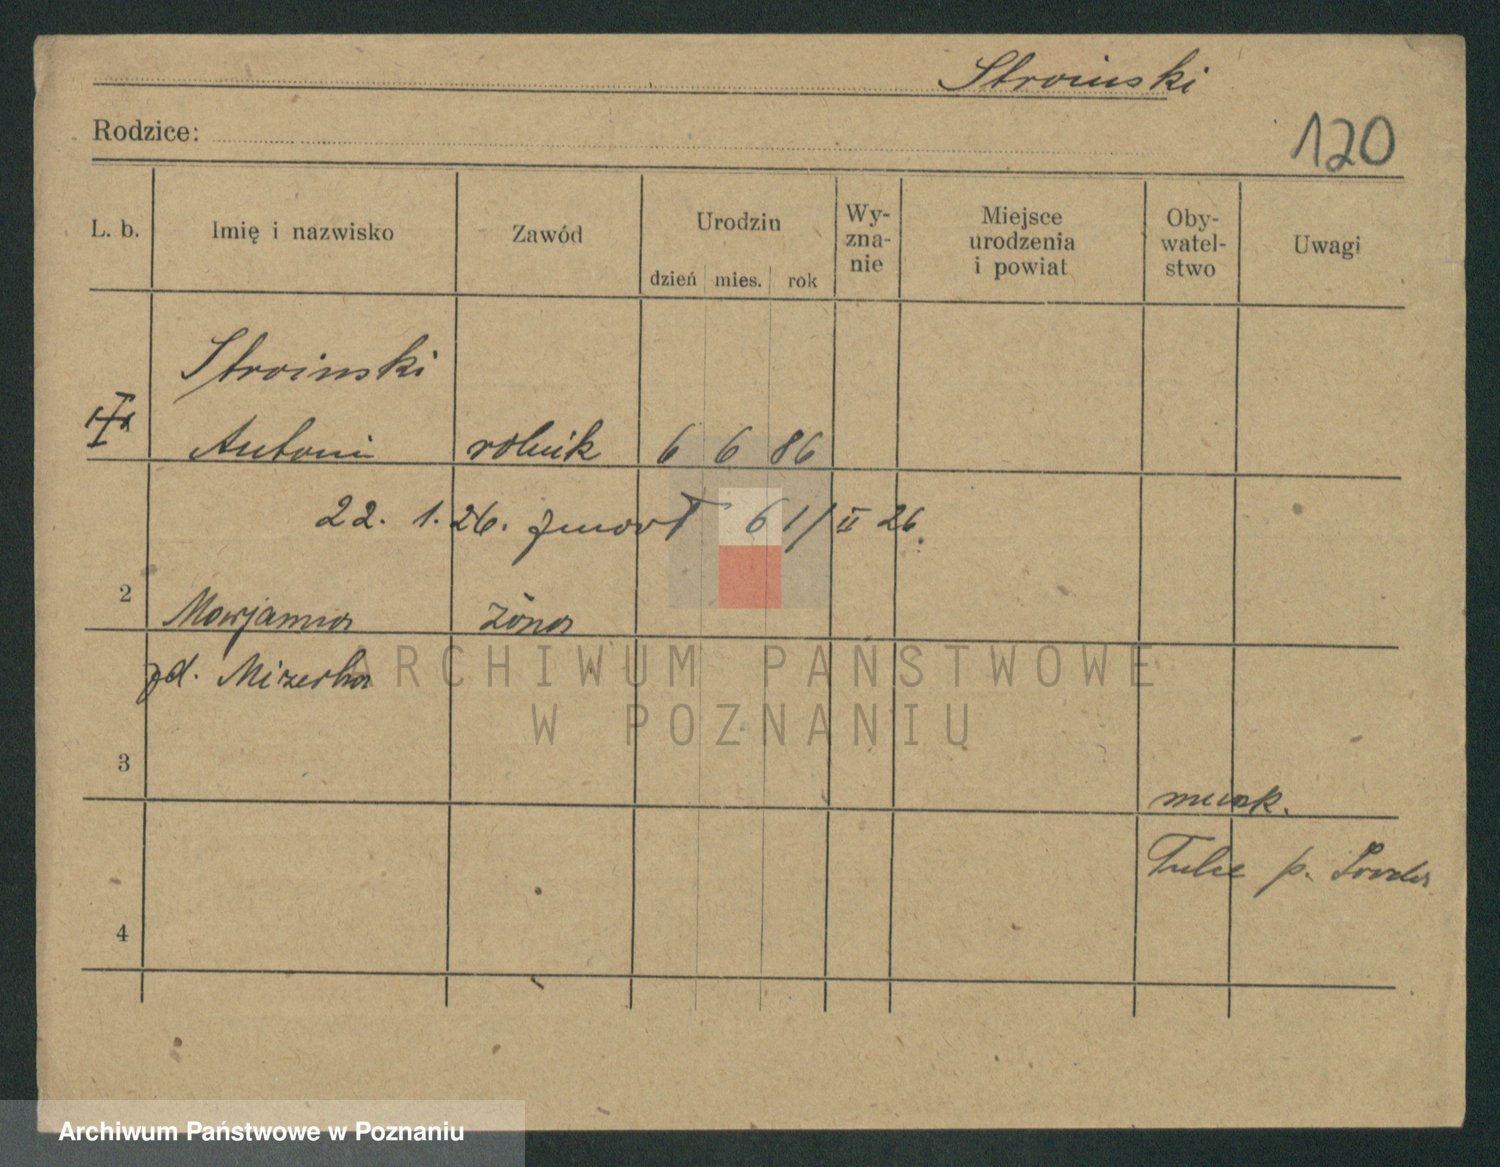 Stroinski
Rodzice:
120
L. b. Imię i nazwisko Zawód Urodzin dzień mies. rok Wy-zna-nie Miejsce urodzenia i powiat Oby-watel-stwo Uwagi
Stroinski
Antoni rolnik 6 6 86
22. 1. 26. zmarł 61/II 26.
2 Marjanna żona
zd. Mizerka
3
mieszk.
4 Tulce p. Środa
ARCHIWUM PAŃSTWOWE
W POZNANIU
Archiwum Państwowe w Poznaniu